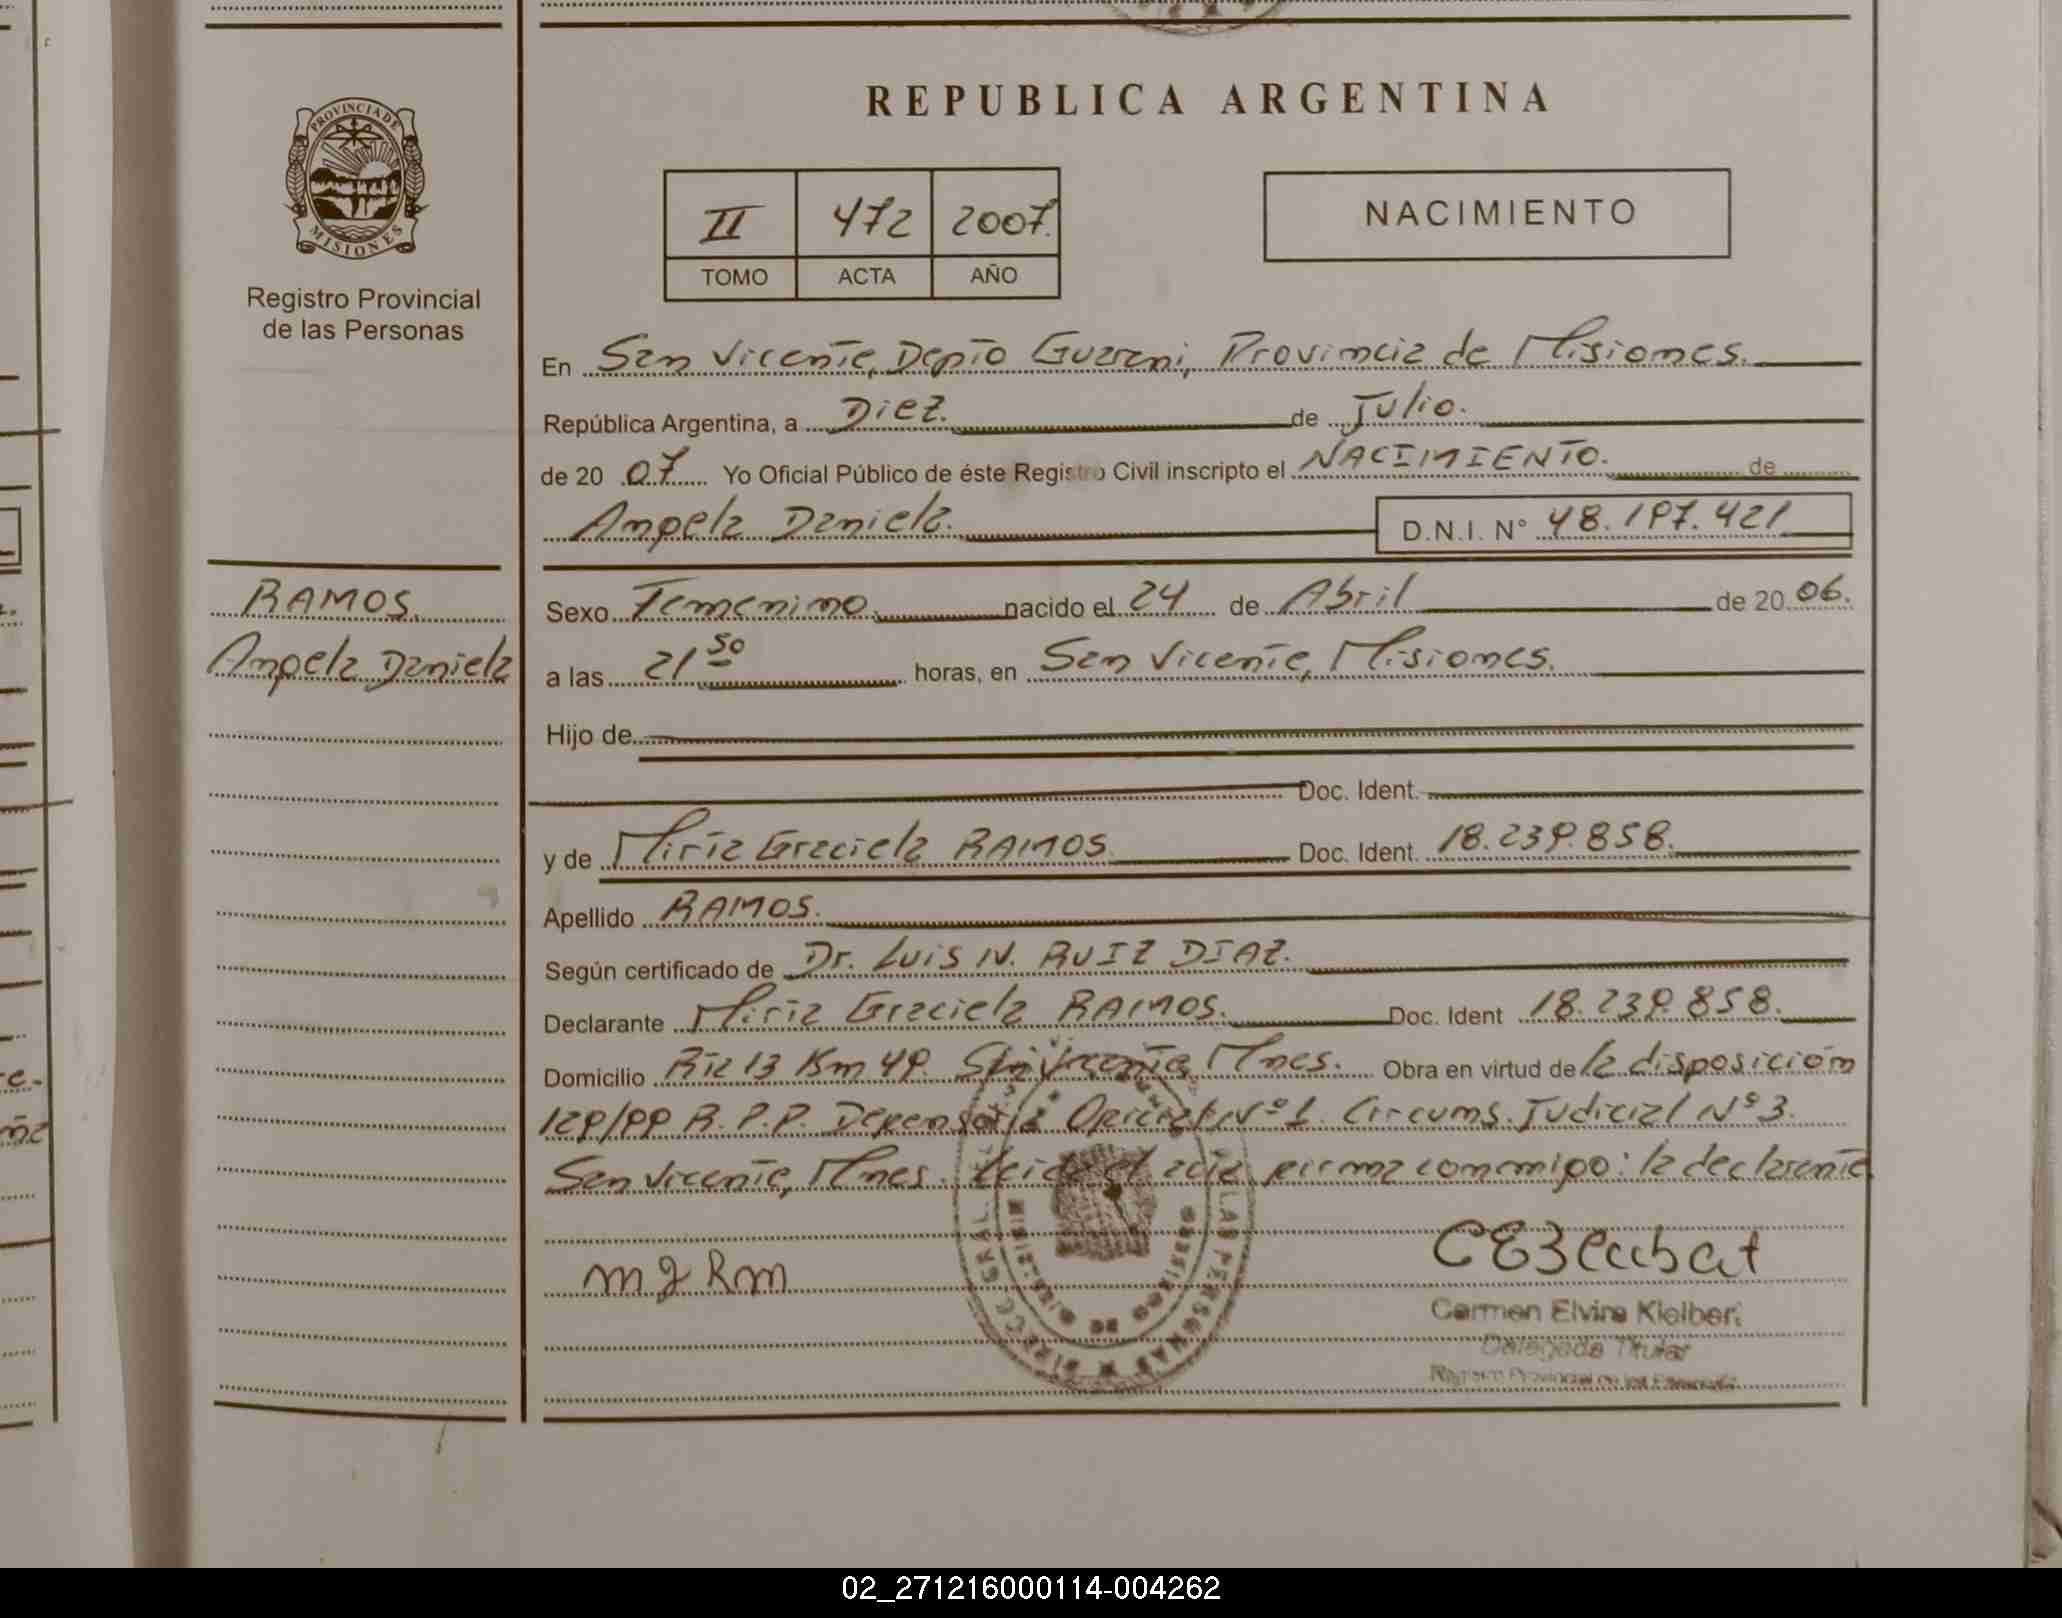 REPUBLICA ARGENTINA
PROVINCIA DE MISIONES
Registro Provincial
de las Personas
II 472 2007.
TOMO ACTA AÑO
NACIMIENTO
En San Vicente, Depto Guarani, Provincia de Misiones.
República Argentina, a Diez. de Julio.
de 20 07 Yo Oficial Público de éste Registro Civil inscripto el NACIMIENTO. de
Angela Daniela. D.N.I. N° 48.197.421
RAMOS.
Angela Daniela
Sexo Femenino. nacido el 24 de Abril de 20 06.
a las 21 50 horas, en San Vicente, Misiones.
Hijo de
Doc. Ident.
y de Miria Graciela RAMOS Doc. Ident. 18.239.858.
Apellido RAMOS.
Según certificado de Dr. Luis N. RUIZ DIAZ.
Declarante Miria Graciela RAMOS. Doc. Ident 18.239.858.
Domicilio Rta 13 Km 49. San Vicente, Mnes. Obra en virtud de la disposición
129/99 R.P.P. Defensoria Oficial Nº 1. Circuns. Judicial Nº 3.
San Vicente, Mnes. Leida el acta firma conmigo: la declarante
m g Rm
Carmen Elvira
Delegada Titular
Registro Provincial de las Personas
02_271216000114-004262